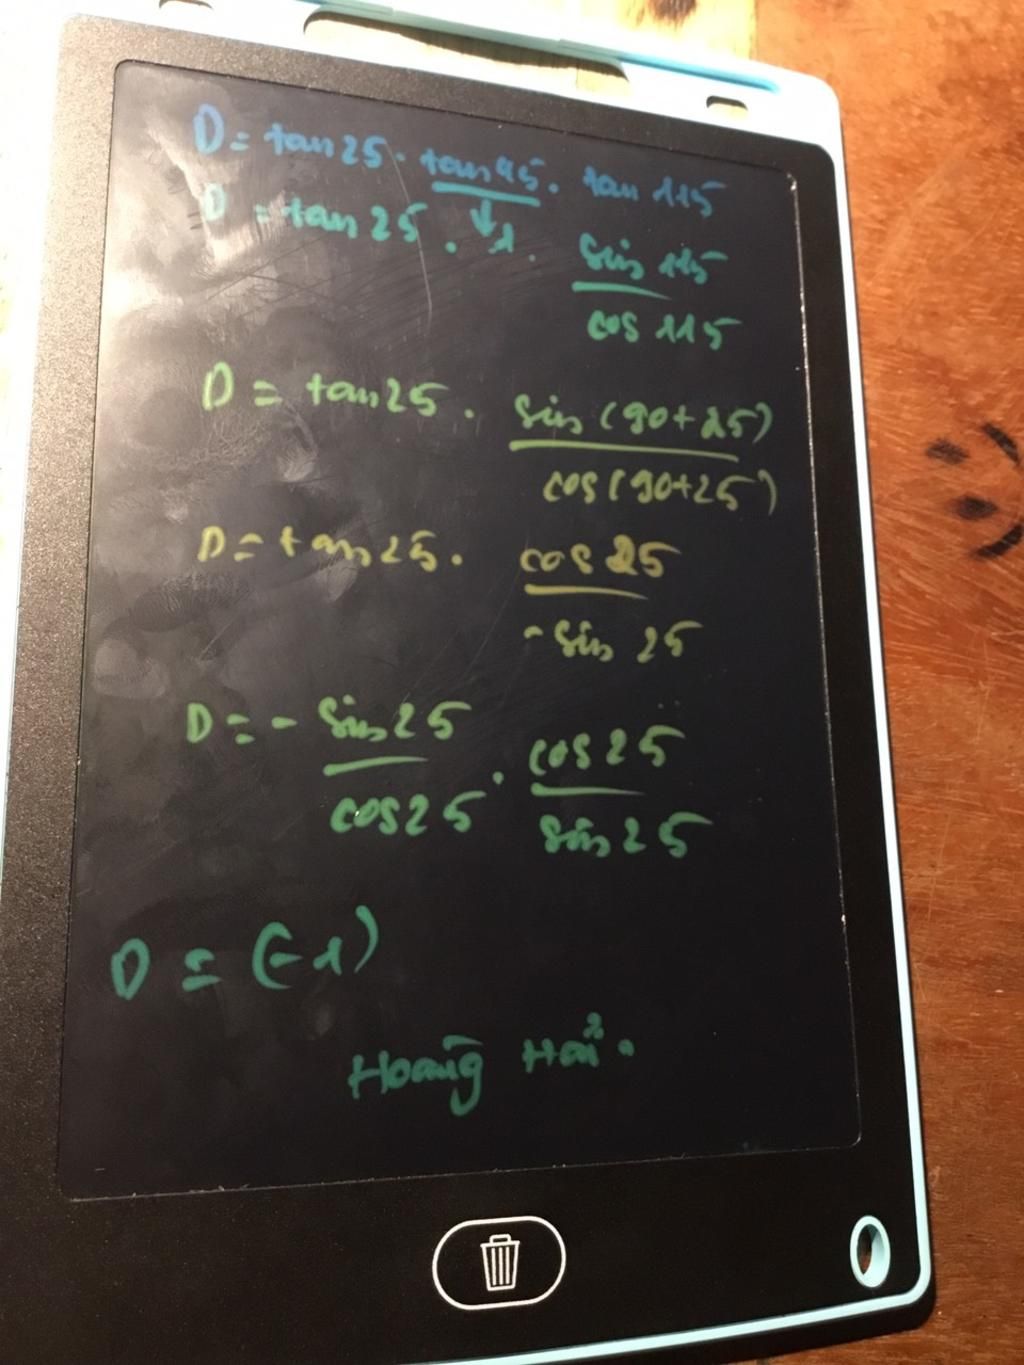 D = tan 25 . tan 45 . tan 115
D = tan 25 . 1 . sin 115
cos 115
D = tan 25 . sin (90+25)
cos (90+25)
D = tan 25 . cos 25
- sin 25
D = - sin 25 . cos 25
cos 25 sin 25
D = (-1)